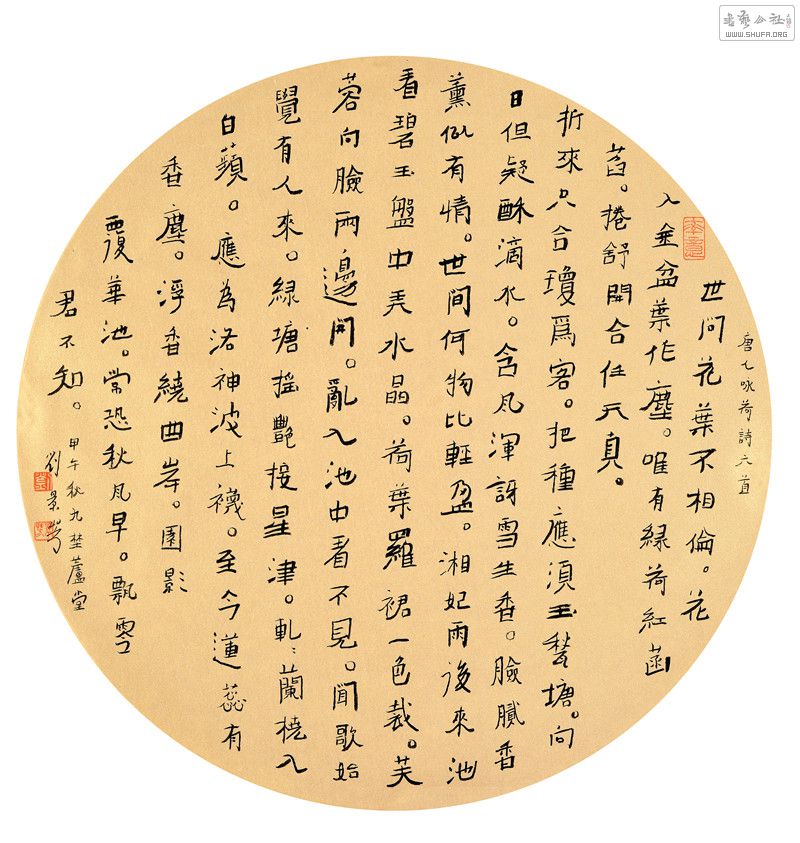 書藝公社
WWW.SHUFA.ORG
唐人咏荷詩六首
世間花葉不相倫。花
入金盆葉作塵。唯有緑荷紅菡
萏。捲舒開合任天真。
折來只合瓊爲客。把種應須玉甃塘。向
日但疑酥滴水。含风渾訝雪生香。臉膩香
薰似有情。世間何物比輕盈。湘妃雨後來池
看碧玉盤中弄水晶。荷葉羅裙一色裁。芙
蓉向臉兩邊開。亂入池中看不見。聞歌始
覺有人來。緑塘搖艷接星津。軋〻蘭橈入
白蘋。應為洛神波上襪。至今蓮蕊有
香塵。浮香繞曲岸。圓影
覆華池。常恐秋风早。飄零
君不知。
甲午秋九埜蘆堂
劉景